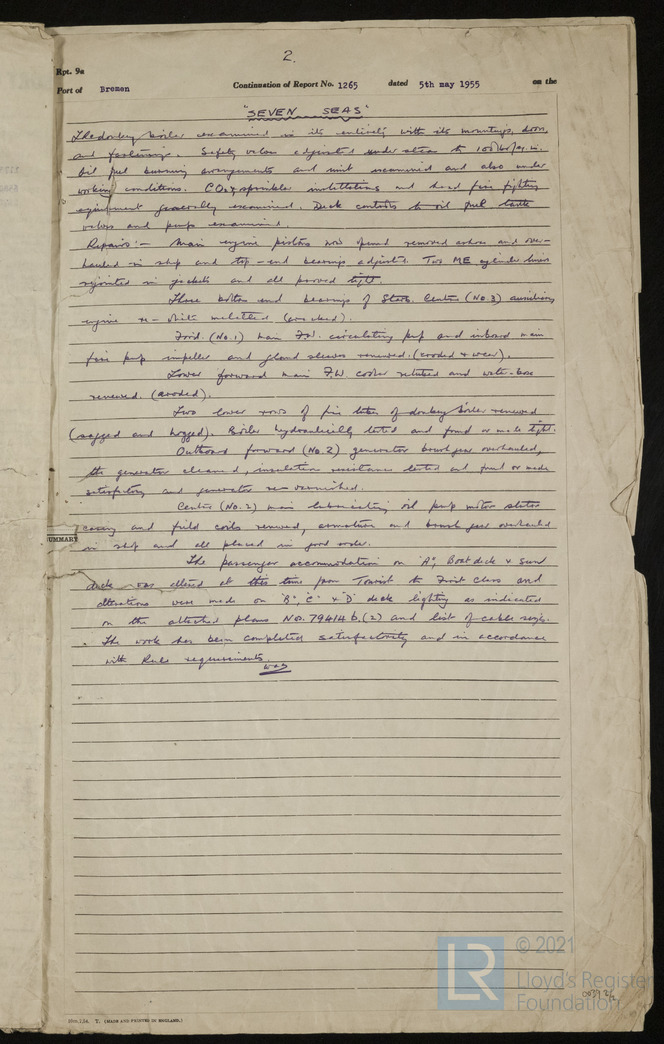 2.
Rpt. 9a
Port of Bremen Continuation of Report No. 1265 dated 5th may 1955 on the
"SEVEN SEAS"
The donkey boiler examined in its entirety with its mountings, doors
and fastenings. Safety valves adjusted under steam to 100 lbs/sq.in.
Oil fuel burning arrangements and unit examined and also under
working conditions. CO2 & sprinkler instillations and head fire fighting
equipment generally examined. Deck controls to oil fuel tank
valves and pumps examined.
Repairs:- Main engine pistons now opened removed ashore and over-
hauled in ship and top-end bearings adjusted. Two ME cylinder liners
rejointed in jackets and all proved tight.
Three bottom end bearings of Starb. Centre (No.3) auxiliary
engine re-white metalled (cracked).
Ford. (No.1) main F.W. circulating pump and inboard main
fire pump impeller and gland sleeves renewed. (eroded & wear).
Lower forward main F.W. cooler retubed and water-box
renewed. (eroded).
Two lower rows of fire tubes of donkey boiler renewed
(sagged and hogged). Boiler hydraulically tested and found or made tight.
Outboard forward (No.2) generator brush gear overhauled,
the generator cleaned, insulation resistance tested and found or made
satisfactory and generator re-varnished.
Centre (No.2) main lubricating oil pump motor stator
casing and field coils renewed, armature and brush gear overhauled
in ship and all placed in good order.
The passenger accommodation on "A", Boat deck & sund
deck was altered at this time from Tourist to First Class and
alterations were made on "B", "C" & "D" deck lighting as indicated
on the attached plans No. 79414 b.(2) and list of cable sizes.
The work has been completed satisfactorily and in accordance
with Rule requirements.
was
UMMARY
(MADE AND PRINTED IN ENGLAND.)
LR
© 2021
Lloyd's Register
Foundation